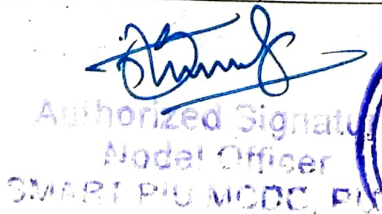 Authorized Signatu
Nodal Officer
SMART PIU MCDC, PU